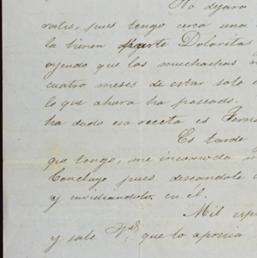 No dejara
ratis, pues tengo cerca una
la bien Doloritas
oyendo que las muchachas
cuatro meses de estar solo
lo que ahora ha pasado.
ha dado esa receta es
Es tarde
que tengo, me incomoda
Concluyo pues deseandole
y envidiandole, en él.
Mil
y sale que lo aprecia